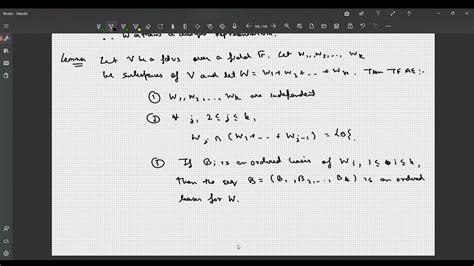 Notes - Inkodo
∴ W attains a unique representation.
Lemma Let V be a fdvs over a field F. Let W₁, W₂, ..., Wk
be subspaces of V and let W = W₁ + W₂ + ... + Wk. Then TFAE:-
① W₁, W₂, ..., Wk are independent
② ∀ j, 2 ≤ j ≤ k,
Wj ∩ (W₁ + ... + Wj-1) = {0}.
③ If Bi is an ordered basis of Wi, 1 ≤ i ≤ k,
then the seq B = (B₁, B₂, ..., Bk) is an ordered
basis for W.